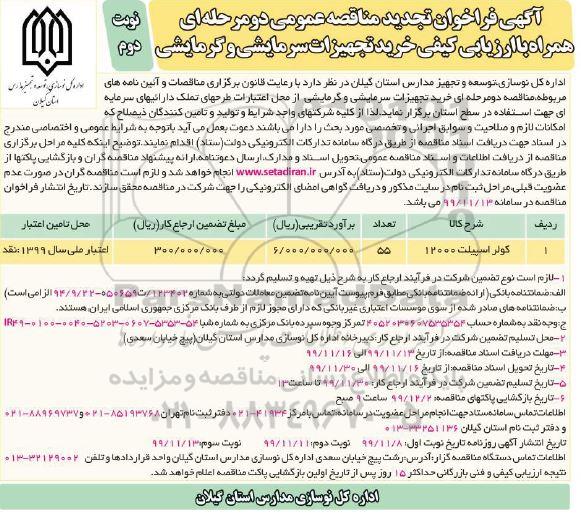 آگهی فراخوان تجدید مناقصه عمومی دومرحله‌ای
همراه با ارزیابی کیفی خرید تجهیزات سرمایشی و گرمایشی
نوبت
دوم
اداره کل نوسازی، توسعه و تجهیز مدارس
استان گیلان
اداره کل نوسازی،توسعه و تجهیز مدارس استان گیلان در نظر دارد با رعایت قانون برگزاری مناقصات و آئین نامه های
مربوطه،مناقصه دومرحله ای خرید تجهیزات سرمایشی و گرمایشی از محل اعتبارات طرحهای تملک دارائیهای سرمایه
ای جهت استفاده در سطح استان برگزار نماید.لذا از کلیه شرکتهای واجد شرایط و تولید و تامین کنندگان ذیصلاح که
امکانات لازم و صلاحیت و سوابق اجرائی و تخصصی مورد بحث را دارا می باشند دعوت بعمل می آید باتوجه به شرایط عمومی و اختصاصی مندرج
در اسناد جهت دریافت اسناد مناقصه از طریق درگاه سامانه تدارکات الکترونیکی دولت(ستاد) اقدام نمایند.توضیح اینکه کلیه مراحل برگزاری
مناقصه از دریافت اطلاعات و اسناد مناقصه عمومی،تحویل اسناد و مدارک،ارسال دعوتنامه،ارائه پیشنهاد مناقصه گران و بازگشایی پاکتها از
طریق درگاه سامانه تدارکات الکترونیکی دولت(ستاد)به آدرس www.setadiran.ir انجام خواهد شد و لازم است مناقصه گران در صورت عدم
عضویت قبلی،مراحل ثبت نام در سایت مذکور و دریافت گواهی امضای الکترونیکی را جهت شرکت در مناقصه محقق سازند.تاریخ انتشار فراخوان
مناقصه در سامانه ۹۹/۱۱/۱۳ می باشد.
ردیف شرح کالا تعداد برآورد تقریبی(ریال) مبلغ تضمین ارجاع کار(ریال) محل تامین اعتبار
۱ کولر اسپیلت ۱۲۰۰۰ ۵۵ ۶/۰۰۰/۰۰۰/۰۰۰ ۳۰۰/۰۰۰/۰۰۰ اعتبار ملی سال ۱۳۹۹:نقد
۱-لازم است نوع تضمین شرکت در فرآیند ارجاع کار به شرح ذیل تهیه و تسلیم گردد:
الف:ضمانتنامه بانکی(ارائه ضمانتنامه بانکی مطابق فرم پیوست آیین نامه تضمین معاملات دولتی به شماره ۱۲۳۴۰۲/ت۵۰۶۵۹ه-۹۴/۹/۲۲ الزامی است)
ب:ضمانتنامه های صادر شده از سوی موسسات اعتباری غیربانکی که دارای مجوز لازم از طرف بانک مرکزی جمهوری اسلامی ایران هستند.
ج:وجه نقد به شماره حساب ۴۰۵۲۰۳۰۶۰۷۵۳۵۳۵۴ تمرکز وجوه سپرده بانک مرکزی به شماره شبا IR۴۹-۰۱۰۰-۰۰۴۰-۵۲۰۳-۰۶۰۷-۵۳۵۳-۵۴
۲-محل تسلیم تضمین شرکت در فرآیند ارجاع کار :دبیرخانه اداره کل نوسازی مدارس استان گیلان(پیچ خیابان سعدی)
۳-مهلت دریافت اسناد مناقصه:از تاریخ ۹۹/۱۱/۱۳الی ۹۹/۱۱/۱۶
۴-تاریخ تحویل اسناد مناقصه: از تاریخ ۹۹/۱۱/۱۶ الی ۹۹/۱۱/۳۰
۵-تاریخ تسلیم تضمین شرکت در فرآیند ارجاع کار: ۹۹/۱۱/۳۰ تا ساعت۱۳
۶-تاریخ بازگشایی پاکتهای مناقصه: ۹۹/۱۲/۲ ساعت ۹ صبح
اطلاعات تماس سامانه ستاد جهت انجام مراحل عضویت در سامانه:تماس با مرکز ۴۱۹۳۴-۰۲۱ دفتر ثبت نام تهران ۸۵۱۹۳۷۶۸-۰۲۱ و ۸۸۹۶۹۷۳۷-۰۲۱
و دفتر ثبت نام استان گیلان ۳۳۲۵۱۱۳۶-۰۱۳
تاریخ انتشار آگهی روزنامه تاریخ نوبت اول: ۹۹/۱۱/۸ نوبت دوم: ۹۹/۱۱/۱۱ نوبت سوم:۹۹/۱۱/۱۳
اطلاعات تماس دستگاه مناقصه گزار:آدرس:رشت پیچ خیابان سعدی اداره کل نوسازی مدارس استان گیلان واحد قراردادها و تلفن ۳۲۱۲۹۰۰۲-۰۱۳
نتیجه ارزیابی کیفی و فنی بازرگانی حداکثر ۱۵ روز پس از تاریخ اولین بازگشایی پاکت مناقصه اعلام خواهد شد.
اداره کل نوسازی مدارس استان گیلان